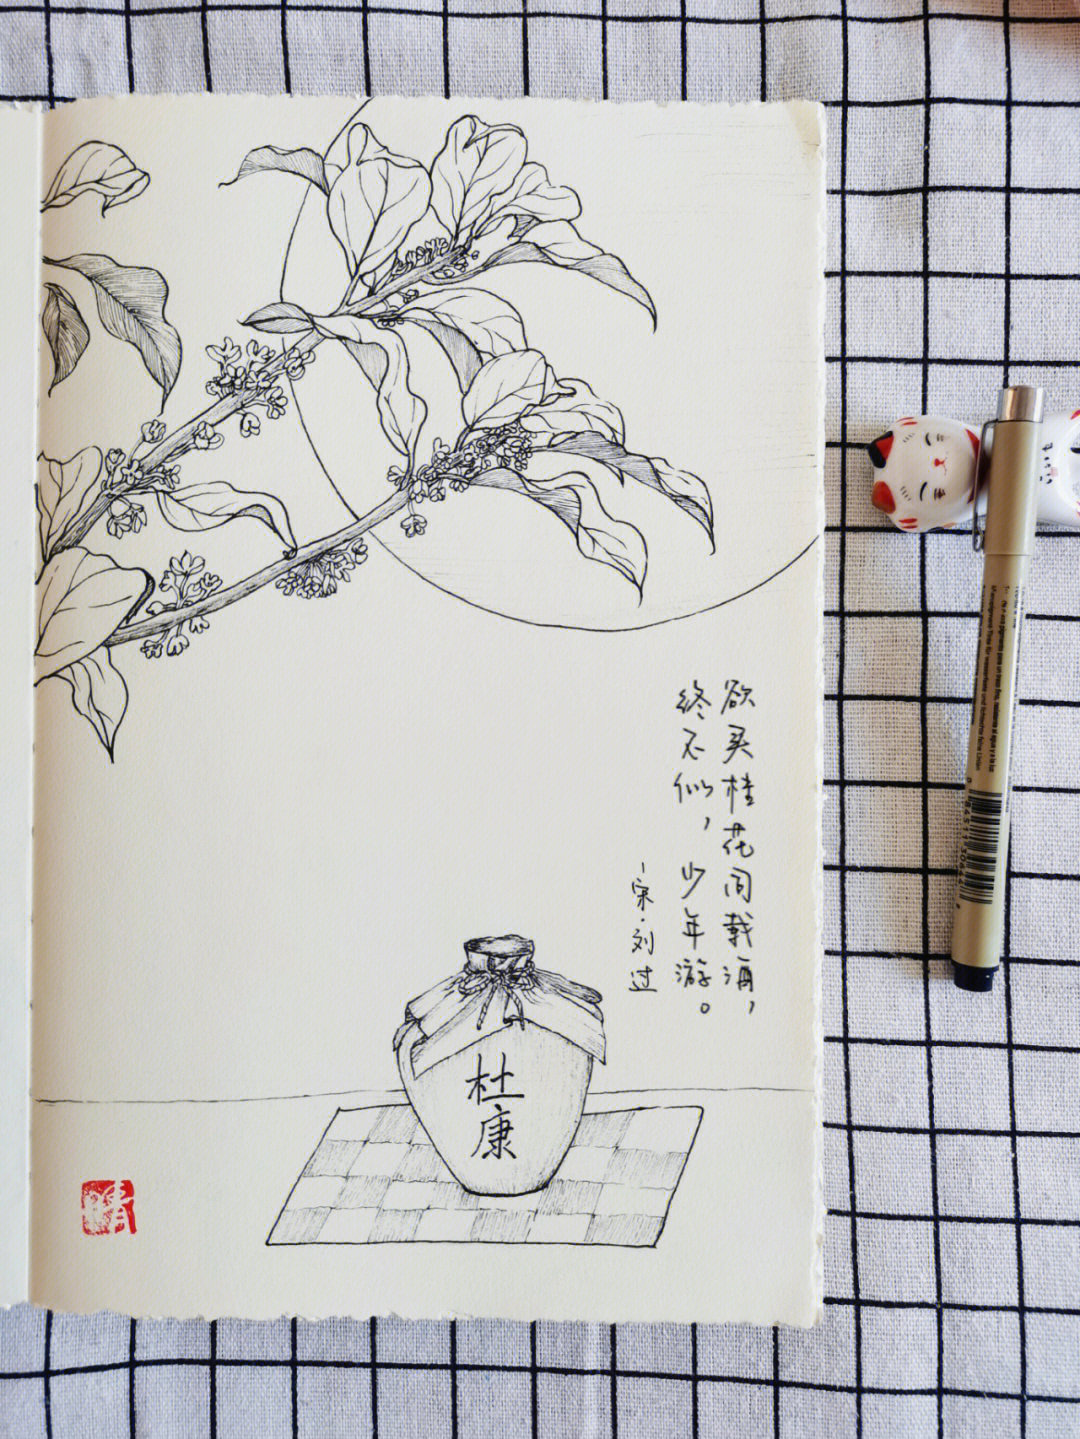 欲买桂花同载酒，
终不似，少年游。
-宋·刘过
杜康
晴